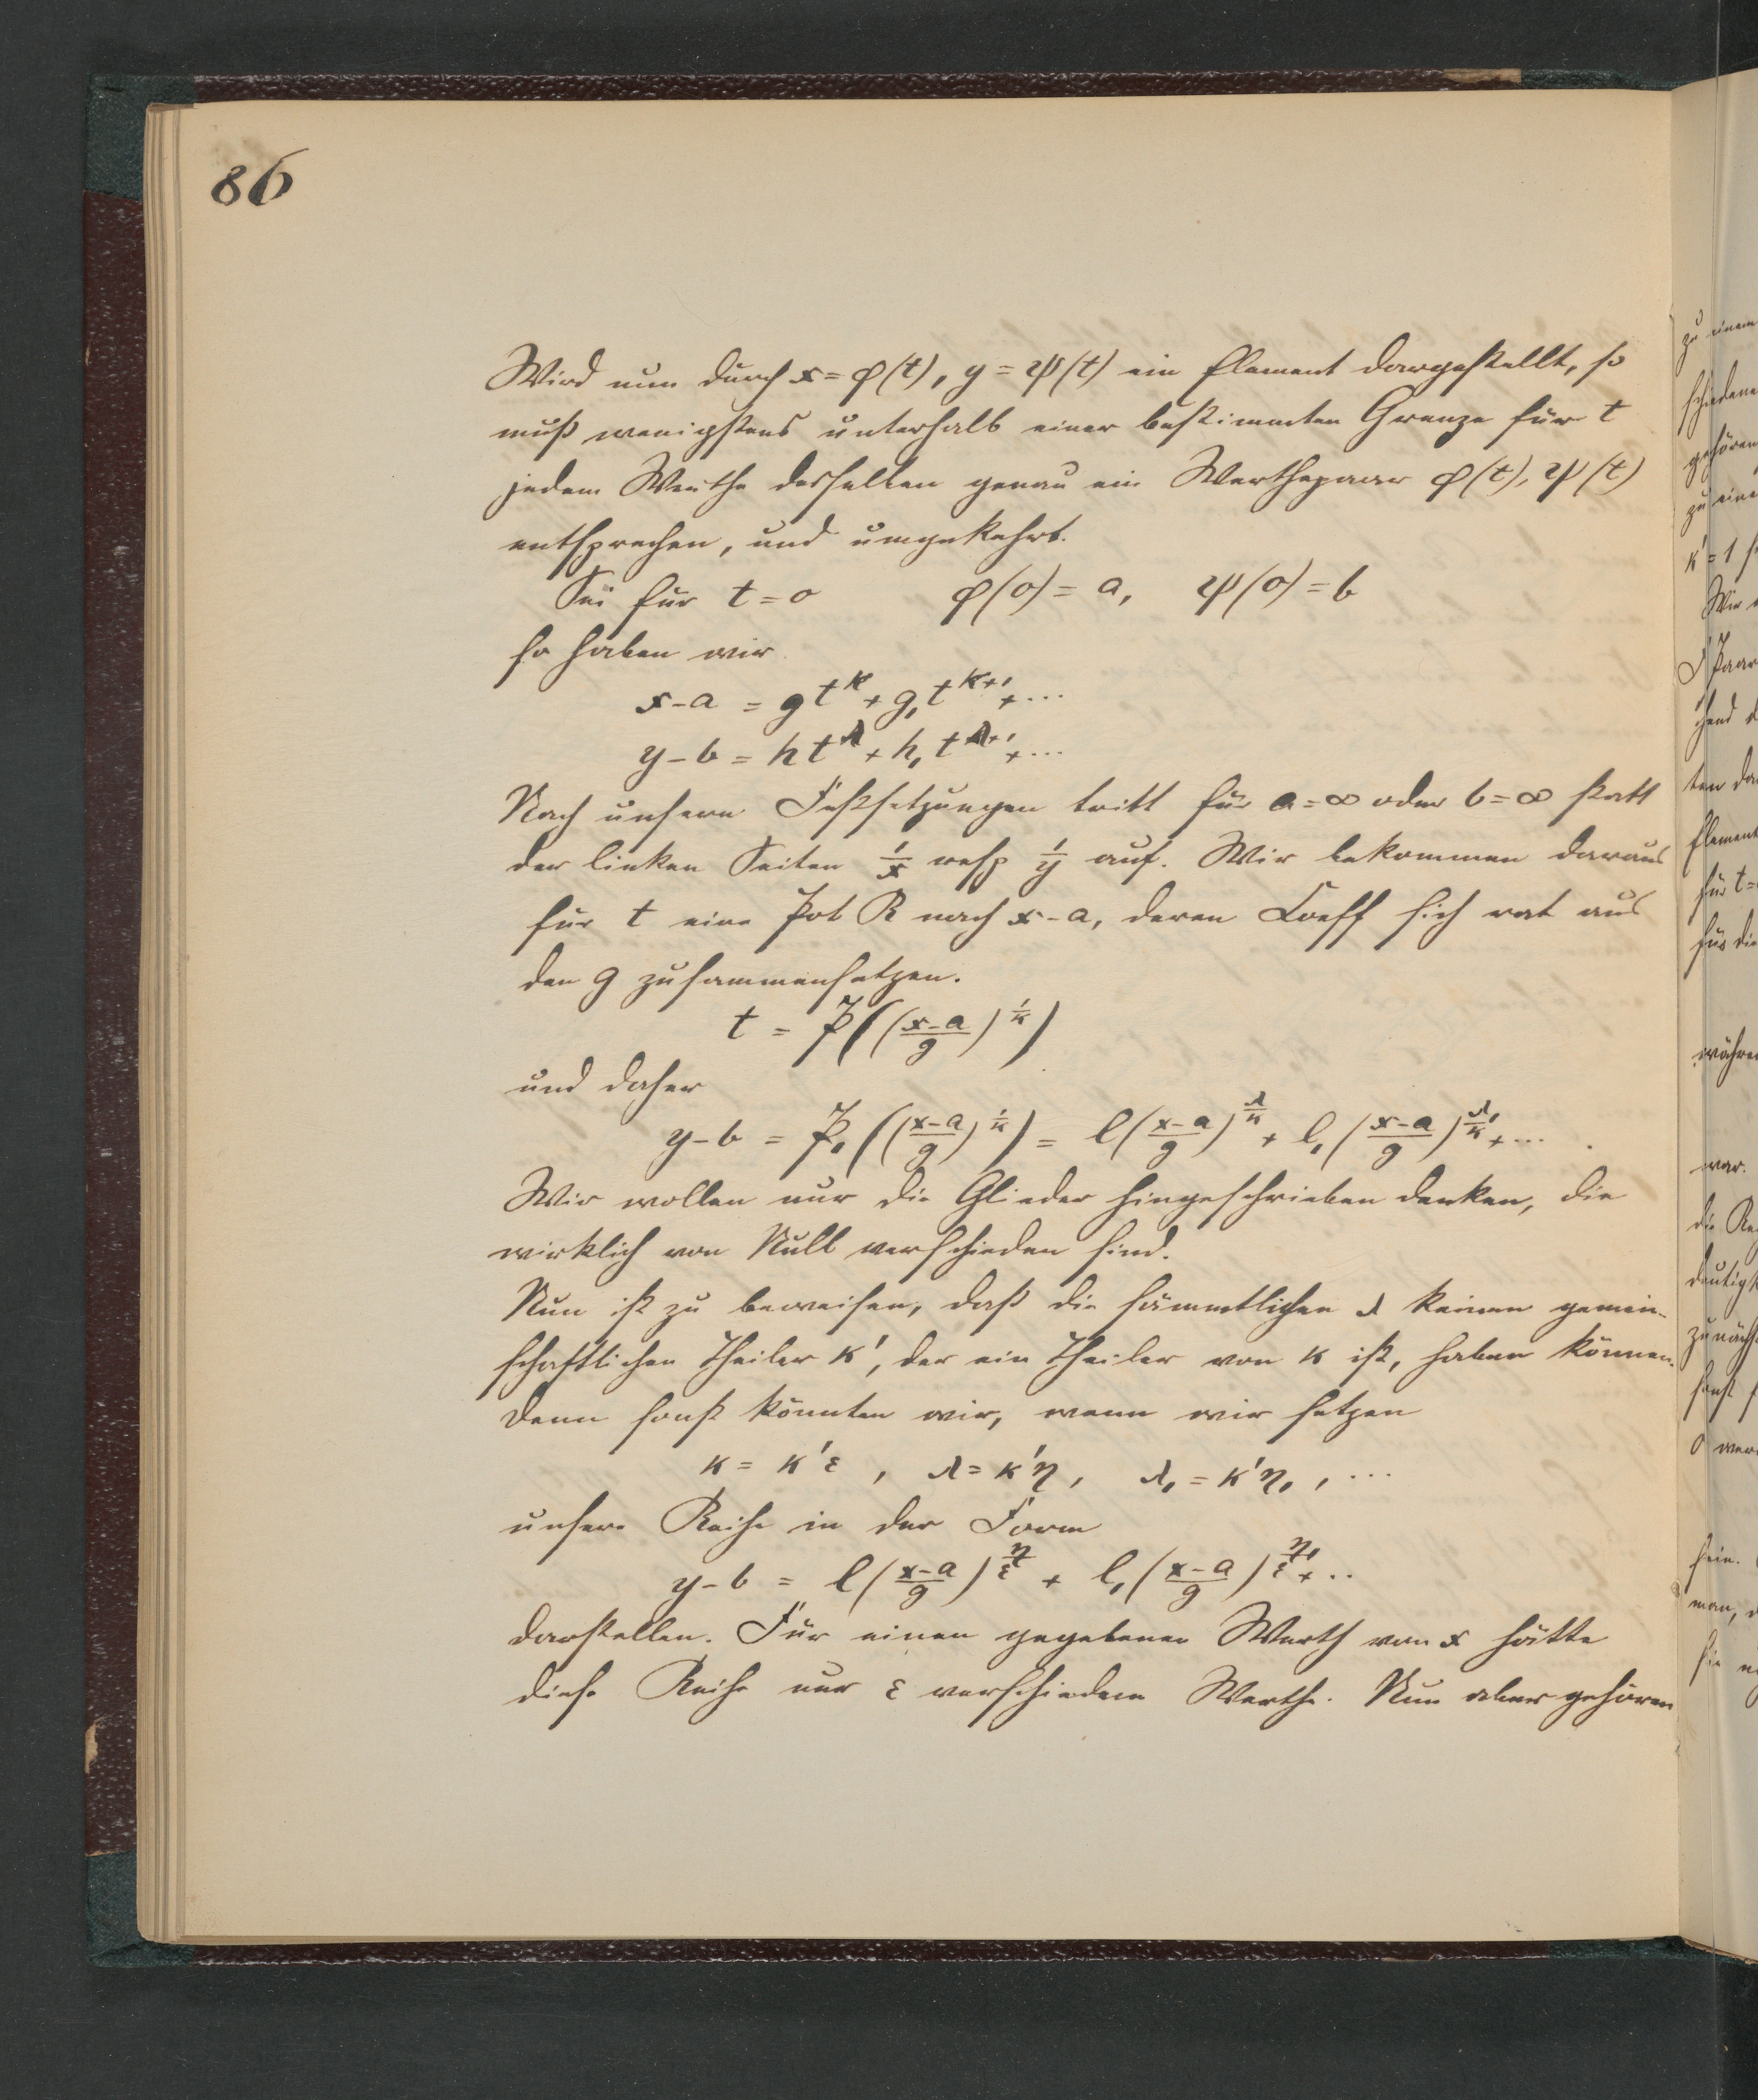 86
Wird nun durch x = φ(t), y = ψ(t) ein Element dargestellt, so
muß wenigstens unterhalb einer bestimmten Grenze für t
jedem Werthe desselben genau ein Werthepaar φ(t), ψ(t)
entsprechen, und umgekehrt.
Sei für t = 0 φ(0) = a, ψ(0) = b
so haben wir
x - a = g t^κ + g₁ t^{κ+1} + ...
y - b = h t^λ + h₁ t^{λ+1} + ...
Nach unsern Festsetzungen tritt für a = ∞ oder b = ∞ statt
der linken Seiten 1/x resp 1/y auf. Wir bekommen daraus
für t eine Pot R nach x - a, deren Coeff sich rat aus
den g zusammensetzen.
t = P(((x-a)/g)^{1/κ})
und daher
y - b = P₁(((x-a)/g)^{1/κ}) = l((x-a)/g)^{λ/κ} + l₁((x-a)/g)^{λ₁/κ} + ...
Wir wollen nur die Glieder hingeschrieben denken, die
wirklich von Null verschieden sind.
Nun ist zu beweisen, daß die sämmtlichen λ keinen gemein-
schaftlichen Theiler κ', der ein Theiler von κ ist, haben können.
Denn sonst könnten wir, wenn wir setzen
κ = κ'ε , λ = κ'η, λ₁ = κ'η₁, ...
unsere Reihe in der Form
y - b = l((x-a)/g)^{η/ε} + l₁((x-a)/g)^{η₁/ε} + ..
darstellen. Für einen gegebenen Werth von x hätte
diese Reihe nur ε verschiedene Werthe. Nun aber gehören